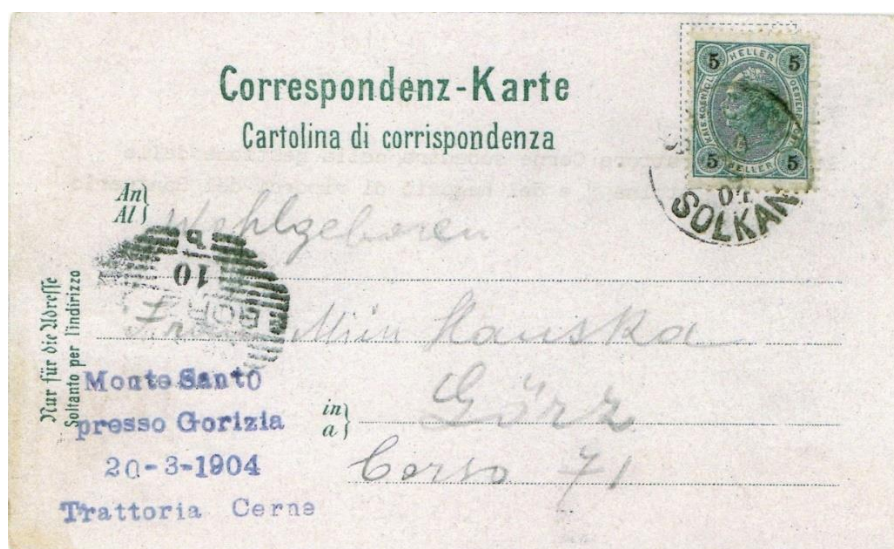 Correspondenz-Karte
Cartolina di corrispondenza
5 HELLER 5
5 HELLER 5
04
SOLKAN
An
Al
Wohlgeboren
10
Hauska
in
a
Görz
Corso 71
Nur für die Adresse
Soltanto per l'indirizzo
Monte Santo
presso Gorizia
20-3-1904
Trattoria Cerne